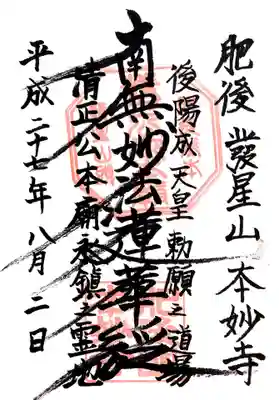 肥後 発星山 本妙寺
後陽成天皇勅願之道場
南無妙法蓮華経
清正公本廟永鎮之霊地
平成二十七年八月二日